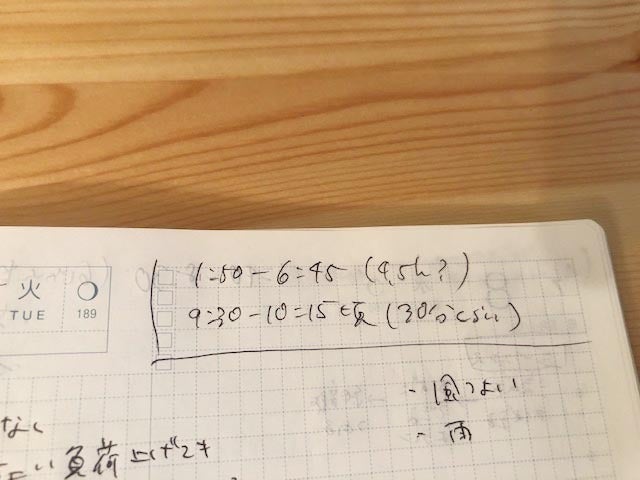 火
TUE
189
1:50 - 6:45 (4,5h?)
9:30 - 10:15頃 (30分くらい)
- 風つよい
- 雨
なく
負荷上げても